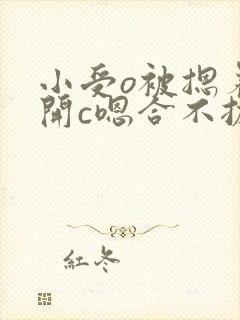 小受o被摁着
開c嗯合不拢
紅冬